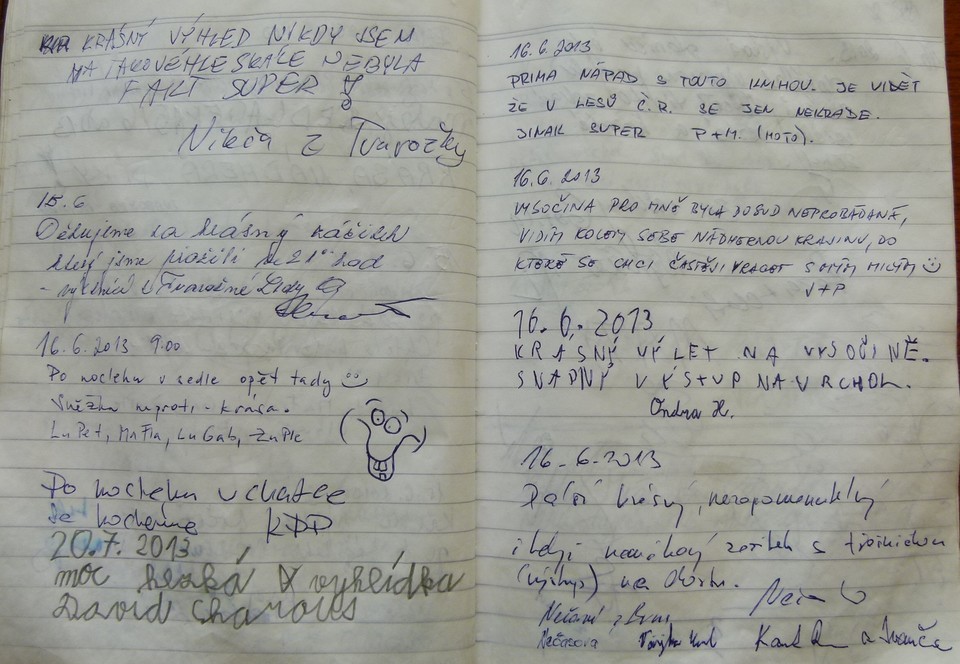 KRÁSNÝ VÝHLED NIKDY JSEM
NA TAKOVÉHLE SKÁLE NEBYLA
FAKT SUPER
Nikča z Tvarožky
15.6
Děkujeme za krásný zážitek
který jsme prožili ve 21°° hod
16.6.2013 9.00
Po noclehu v sedle opět tady
Sněžka naproti - krása.
LuPet, MaFia, LuGab, ZuPle
Po noclehu v chatce
se kocháme KPP
20.7. 2013
moc hezká vyhlídka
David
16.6.2013
PRIMA NÁPAD S TOUTO KNIHOU. JE VIDĚT
ŽE V LESŮ Č.R. SE JEN NEKRADE.
JINAK SUPER P+M. (MOTO).
16.6. 2013
VYSOČINA PRO MNĚ BYLA DOSUD NEPROBÁDANÁ,
VIDÍM KOLEM SEBE NÁDHERNOU KRAJINU, DO
KTERÉ SE CHCI ČASTĚJI VRACET S MÝM MILÝM
J+P
16.6. 2013
KRÁSNÝ VÝLET NA VYSOČINĚ.
SNADNÝ VÝSTUP NA VRCHOL.
Ondra H.
16-6-2013
Další krásný, nezapomenutelný
i když zážitek s
(výstup) na
z Brna
a Ivanča